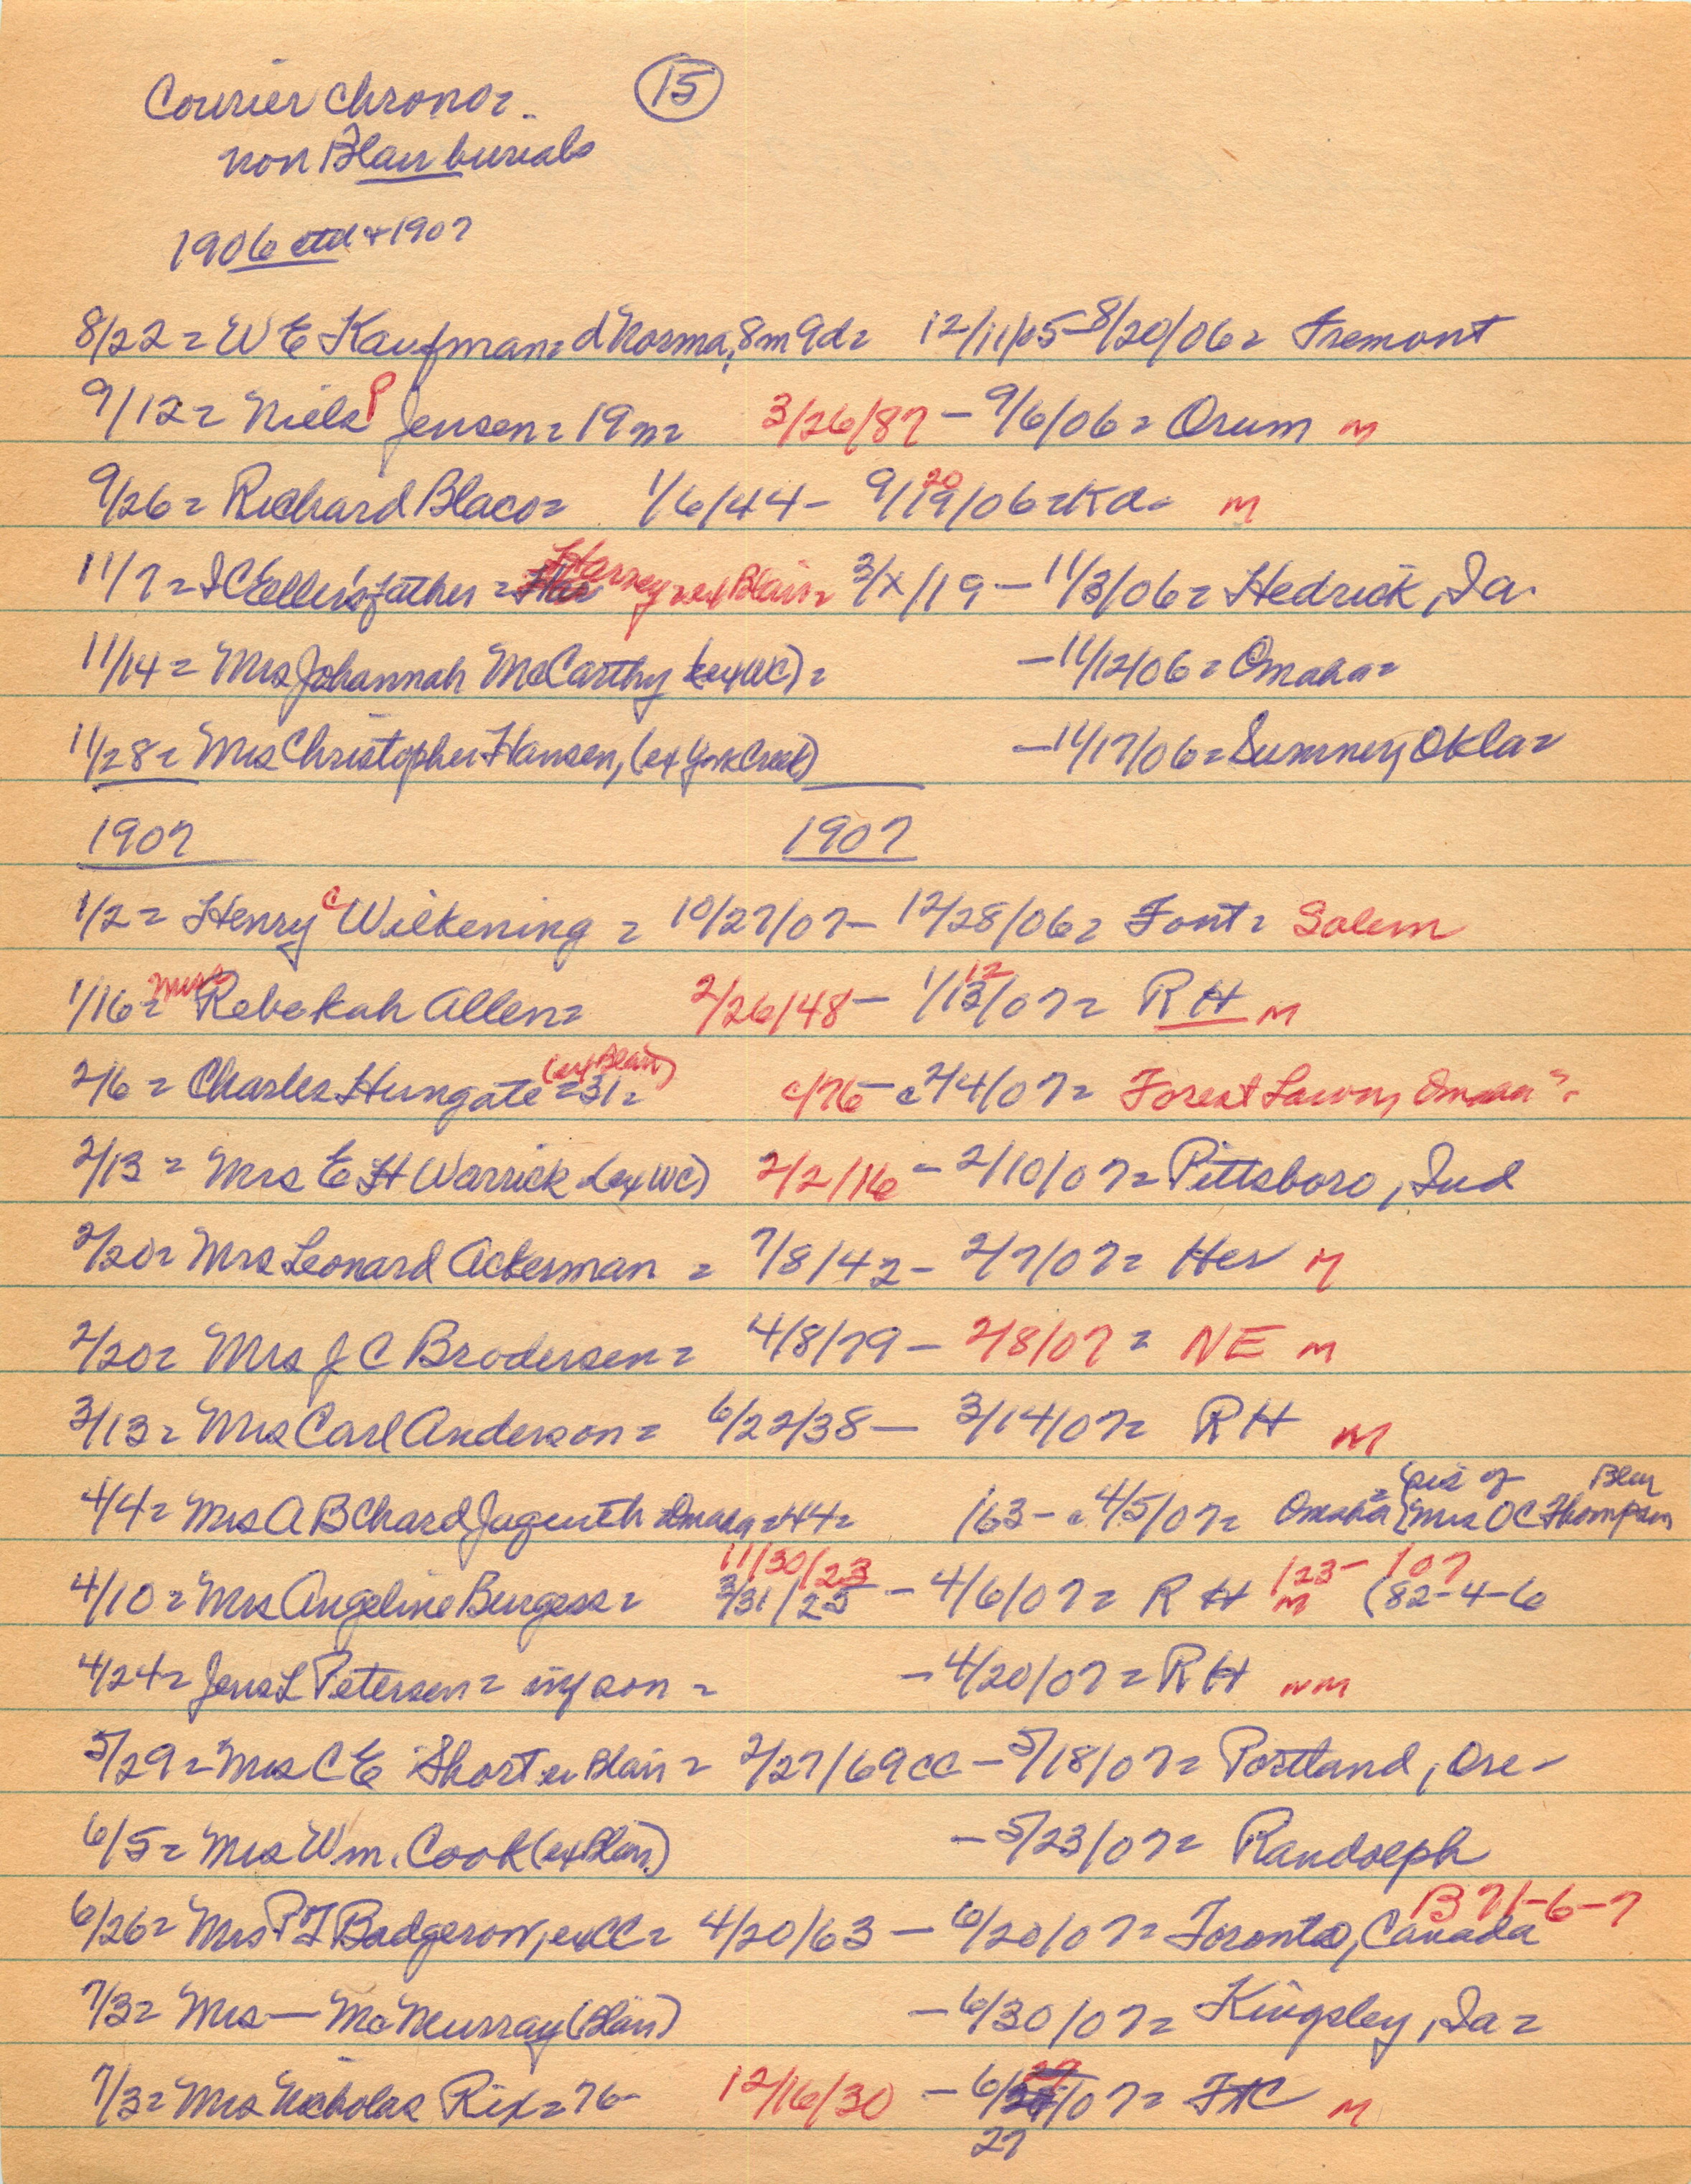 Courier Chrono= (15)
non Blair burials
1906 ctd + 1907
8/22 = W E Kaufman= d Norma, 8m 9d= 12/11/05-8/20/06= Fremont
9/12= Niels P Jensen= 19 m= 3/26/87 - 9/6/06= Orum M
9/26= Richard Blaco= 1/6/44- 9/19/06= Kd= M
20
11/7= I C Eller's father = Harvey = ex Blair= 3/x/19 - 11/3/06= Hedrick, Ia.
11/14= Mrs Johannah McCarthy (ex WC) = -11/12/06= Omaha=
11/28= Mrs Christopher Hansen, (ex York Creek) -11/17/06= Sumner, Okla=
1907 1907
1/2= Henry C Wilkening = 10/27/07- 12/28/06= Font= Salem
1/16= Mrs Rebekah Allen= 2/26/48- 1/13/07= RH M
12
2/6= Charles Hungate =31= (ex Blair) c/76- c 2/4/07= Forest Lawn, Omaha?=
2/13= Mrs E H Warrick (ex WC) 2/2/16 - 2/10/07= Pittsboro, Ind
2/20= Mrs Leonard Ackerman = 7/8/42- 2/7/07= Her M
2/20= Mrs J C Brodersen= 4/8/79- 2/8/07= NE M
3/13= Mrs Carl Anderson= 6/22/38- 3/14/07= RH M
4/4= Mrs A B Chard Jaquith Omaha =44= /63- c 4/5/07= Omaha= {sis of Blair Mrs O C Thompson
11/30/23 /23- /07
4/10= Mrs Angeline Burgess= 3/31/25 - 4/6/07= RH M (82-4-6
4/24= Jens L Petersen= inf son = -4/20/07= RH NM
5/29= Mrs C E Short ex Blair = 2/27/69 CC -5/18/07= Portland, Ore-
6/5= Mrs Wm. Cook (ex Blair) -5/23/07= Randolph
B 71-6-7
6/26= Mrs P T Badgerow, ex CC= 4/20/63 - 6/20/07= Toronto, Canada
7/3= Mrs — McMurray (Blair) -6/30/07= Kingsley, Ia=
7/3= Mrs Nicholas Rix= 76- 12/16/30 - 6/27/07= FTC M
27